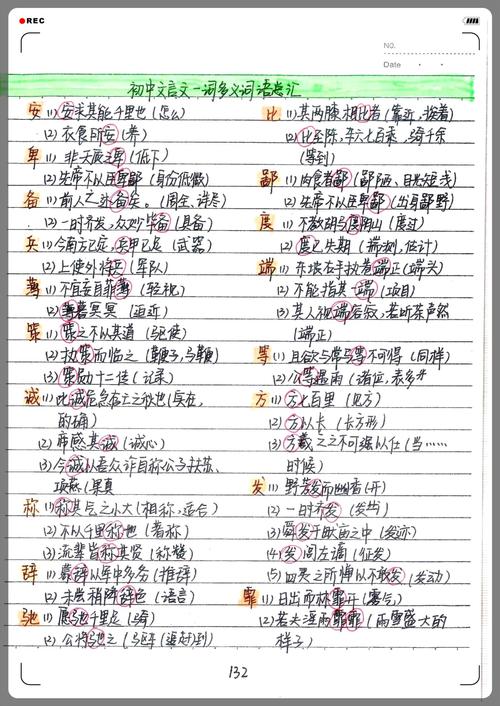 REC
NO.
Date
初中文言文一词多义词语总汇
安 (1) 安求其能千里也 (怎么)
(2) 衣食所安 (养)
卑 (1) 非天质之卑 (低下)
(2) 先帝不以臣卑鄙 (身份低微)
备 (1) 前人之述备矣。(周全、详尽)
(2) 一时齐发,众妙毕备 (具备)
兵 (1) 今南方已定,兵甲已足 (武器)
(2) 上使外将兵 (军队)
薄 (1) 不宜妄自菲薄 (轻视)
(2) 薄暮冥冥 (迫近)
策 (1) 策之不以其道 (驱使)
(2) 执策而临之 (鞭子,马鞭)
(3) 策勋十二转 (记录)
诚 (1) 此诚危急存亡之秋也 (实在,
的确)
(2) 帝感其诚 (诚心)
(3) 今诚以吾众诈自称公子扶苏、
项燕 (果真
称 (1) 称其气之小大 (相称,适合)
(2) 不以千里称也 (著称)
(3) 流辈皆称其贤 (称赞)
辞 (1) 蒙辞以军中多务 (推辞)
(2) 未尝稍降辞色 (语言)
驰 (1) 愿驰千里足 (骑)
(2) 公将驰之 (驱车(追赶到)
比 (1) 其两膝相比者 (靠近,挨着)
(2) 比至陈,车六七百乘,骑千余
(等到)
鄙 (1) 肉食者鄙 (鄙陋、目光短浅)
(2) 先帝不以臣卑鄙 (出身鄙野)
度 (1) 不教胡马度阴山 (度过)
(2) 度已失期 (揣测,估计)
端 (1) 东坡右手执卷端 (端头)
(2) 不能指其一端 (项目)
(3) 其人视端容寂,若听茶声然
(端正)
等 (1) 且欲与常马等不可得 (同样)
(2) 公等遇雨 (诸位,表多
方 (1) 方七百里 (见方)
(2) 方以长 (长方形)
(3) 方羲之之不可强以仕 (当……
时候)
发 (1) 野芳发而幽香 (开)
(2) 一时齐发 (发出)
(3) 舜发于畎亩之中 (发迹)
(4) 发闾左谪 (征发)
(5) 四灵之所惮以不敢发 (发动)
霏 (1) 日出而林霏开 (雾气)
(2) 若夫淫雨霏霏 (雨雪盛大的
样子)
132